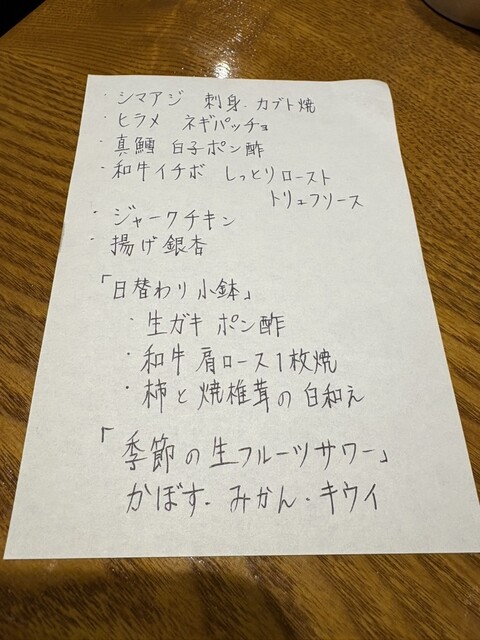 ・シマアジ 刺身.カブト焼
・ヒラメ ネギパッチョ
・真鱈 白子ポン酢
・和牛イチボ しっとりロースト
トリュフソース
・ジャークチキン
・揚げ銀杏
「日替わり小鉢」
・生ガキ ポン酢
・和牛肩ロース1枚焼
・柿と焼椎茸の白和え
「季節の生フルーツサワー」
かぼす.みかん.キウイ